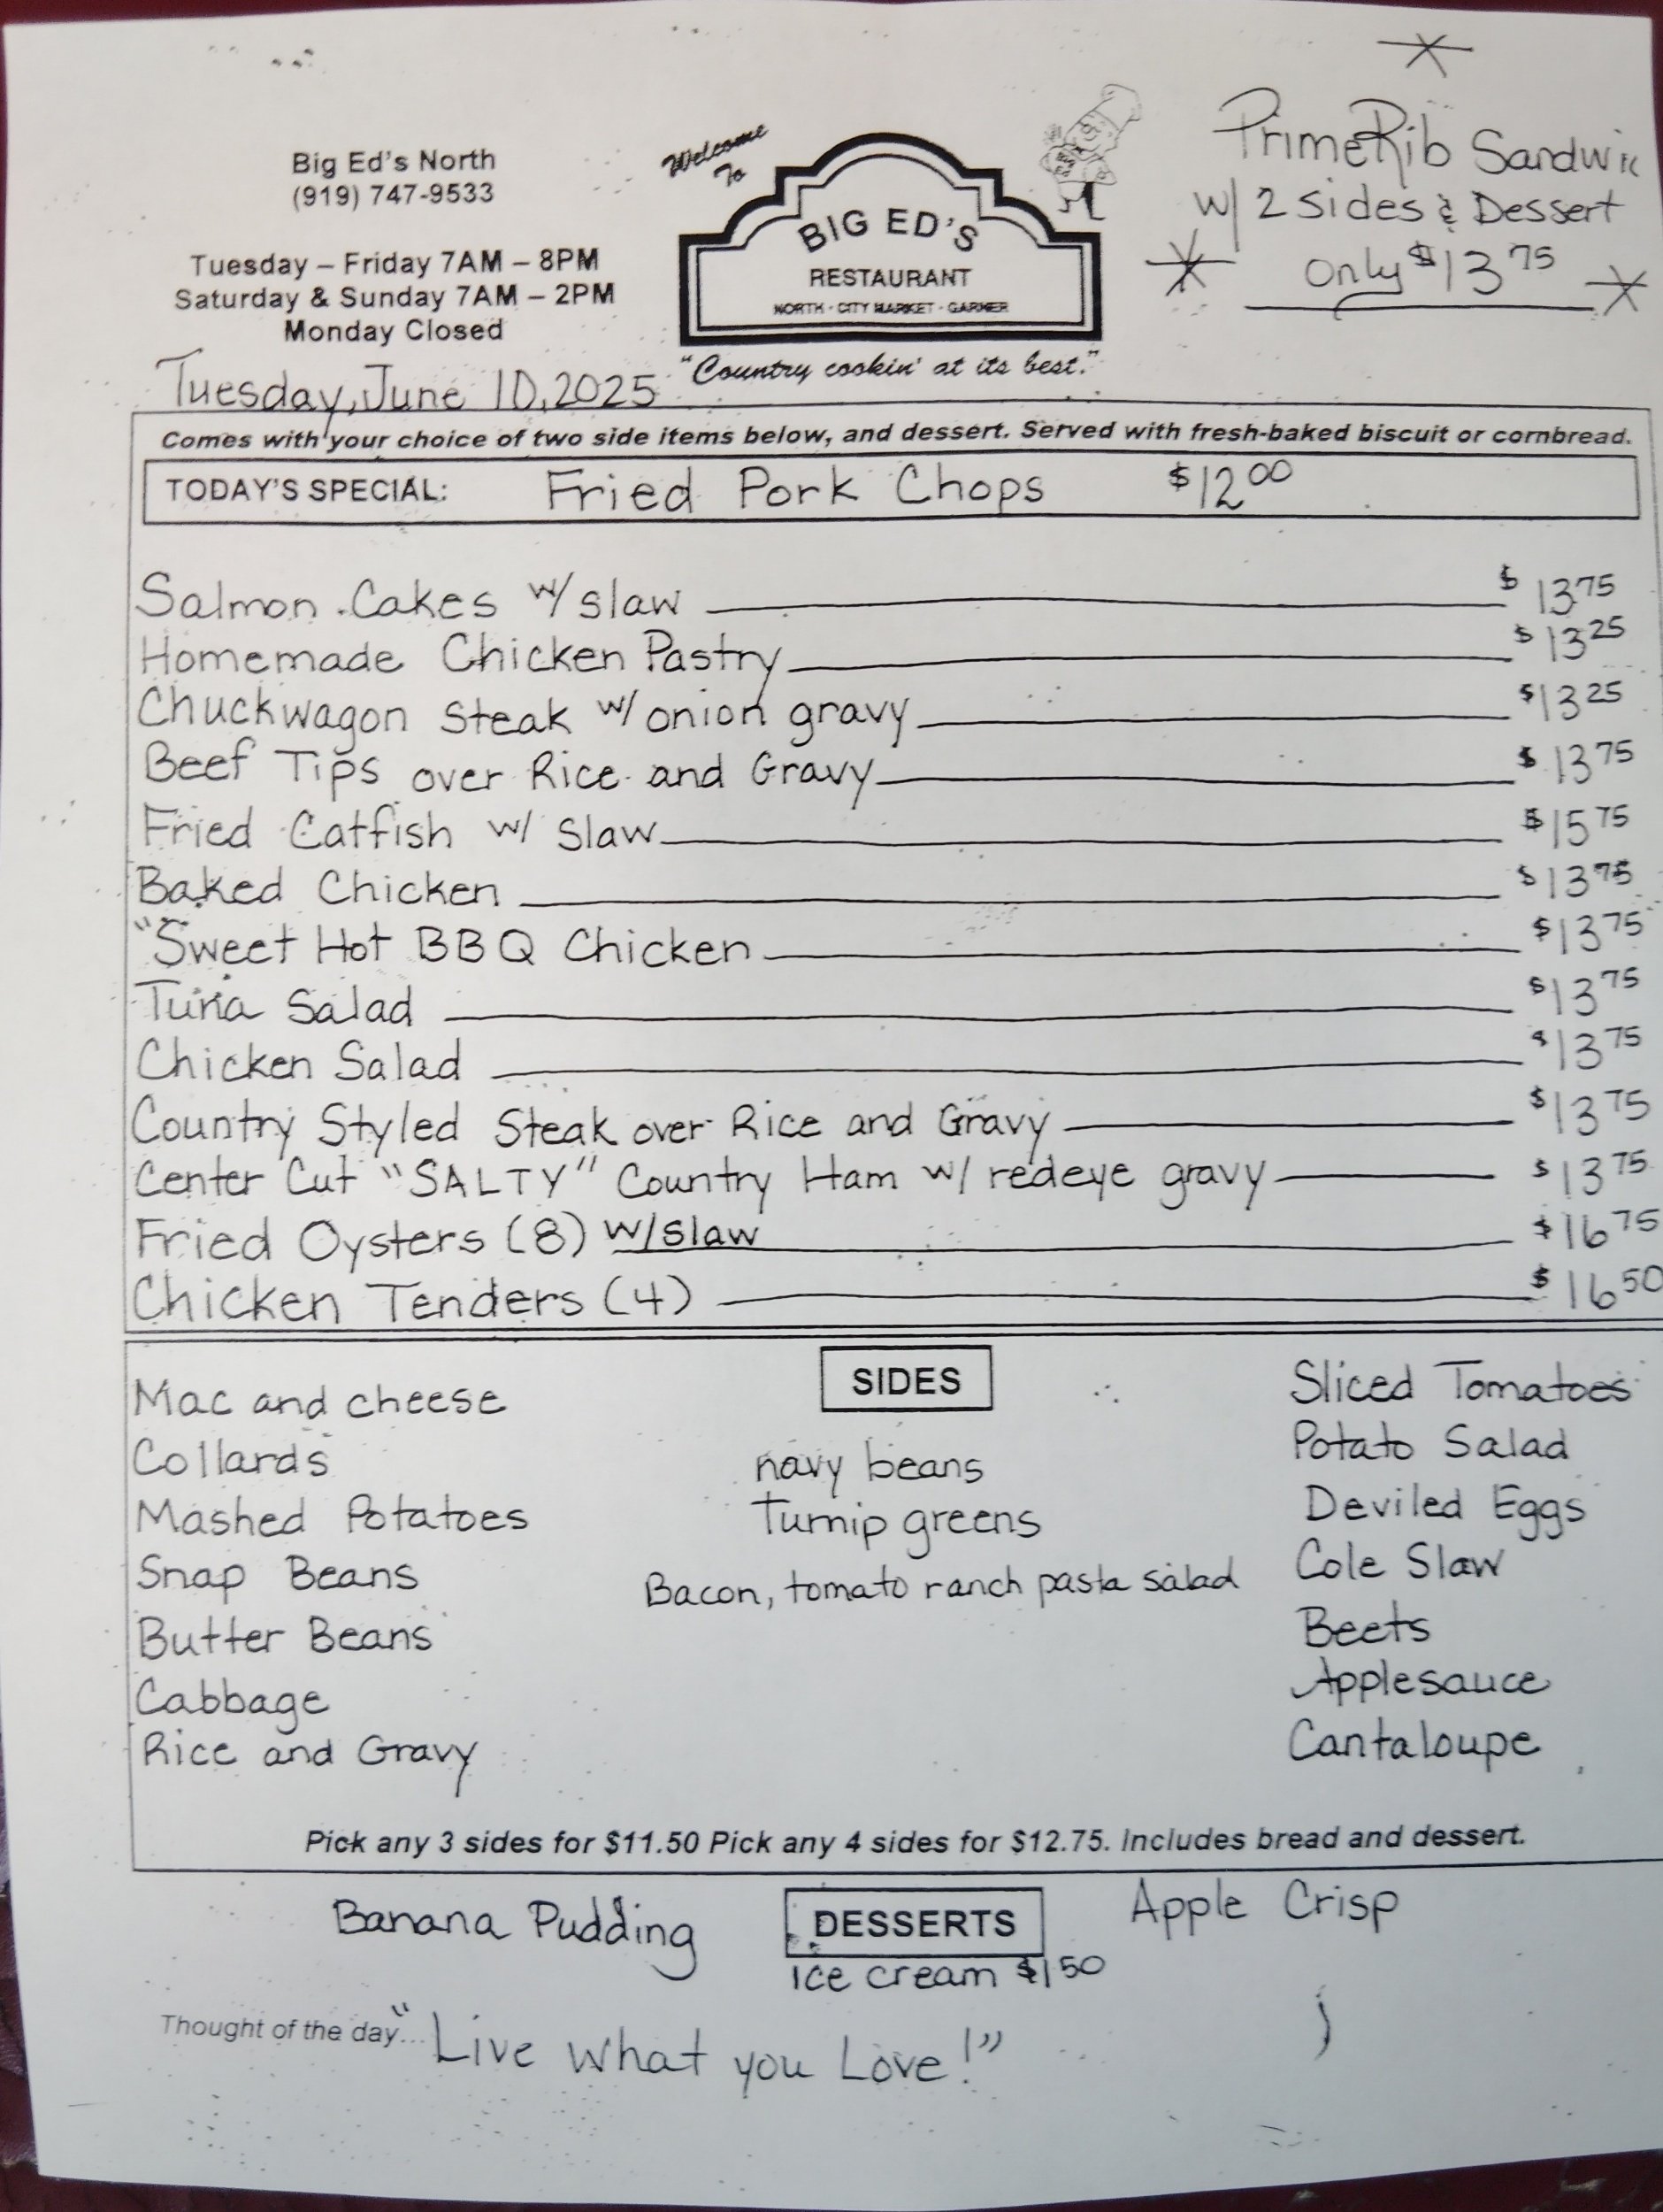 Big Ed's North
(919) 747-9533
Tuesday – Friday 7AM – 8PM
Saturday & Sunday 7AM – 2PM
Monday Closed
Welcome
To
BIG ED'S
RESTAURANT
NORTH · CITY MARKET · GARNER
"Country cookin' at its best."
Prime Rib Sandwic
w/ 2 sides & Dessert
only $13 75
Tuesday, June 10, 2025
Comes with your choice of two side items below, and dessert. Served with fresh-baked biscuit or cornbread.
TODAY'S SPECIAL: Fried Pork Chops $12 00
Salmon Cakes w/ slaw $13 75
Homemade Chicken Pastry $13 25
Chuckwagon Steak w/ onion gravy $13 25
Beef Tips over Rice and Gravy $13 75
Fried Catfish w/ Slaw $15 75
Baked Chicken $13 75
"Sweet Hot BBQ Chicken $13 75
Tuna Salad $13 75
Chicken Salad $13 75
Country Styled Steak over Rice and Gravy $13 75
Center Cut "SALTY" Country Ham w/ redeye gravy $13 75
Fried Oysters (8) w/slaw $16 75
Chicken Tenders (4) $16 50
SIDES
Mac and cheese
Collards
Mashed Potatoes
Snap Beans
Butter Beans
Cabbage
Rice and Gravy
navy beans
Turnip greens
Bacon, tomato ranch pasta salad
Sliced Tomatoes
Potato Salad
Deviled Eggs
Cole Slaw
Beets
Applesauce
Cantaloupe
Pick any 3 sides for $11.50 Pick any 4 sides for $12.75. Includes bread and dessert.
DESSERTS
Banana Pudding
Ice cream $1 50
Apple Crisp
Thought of the day... "Live what you Love!"